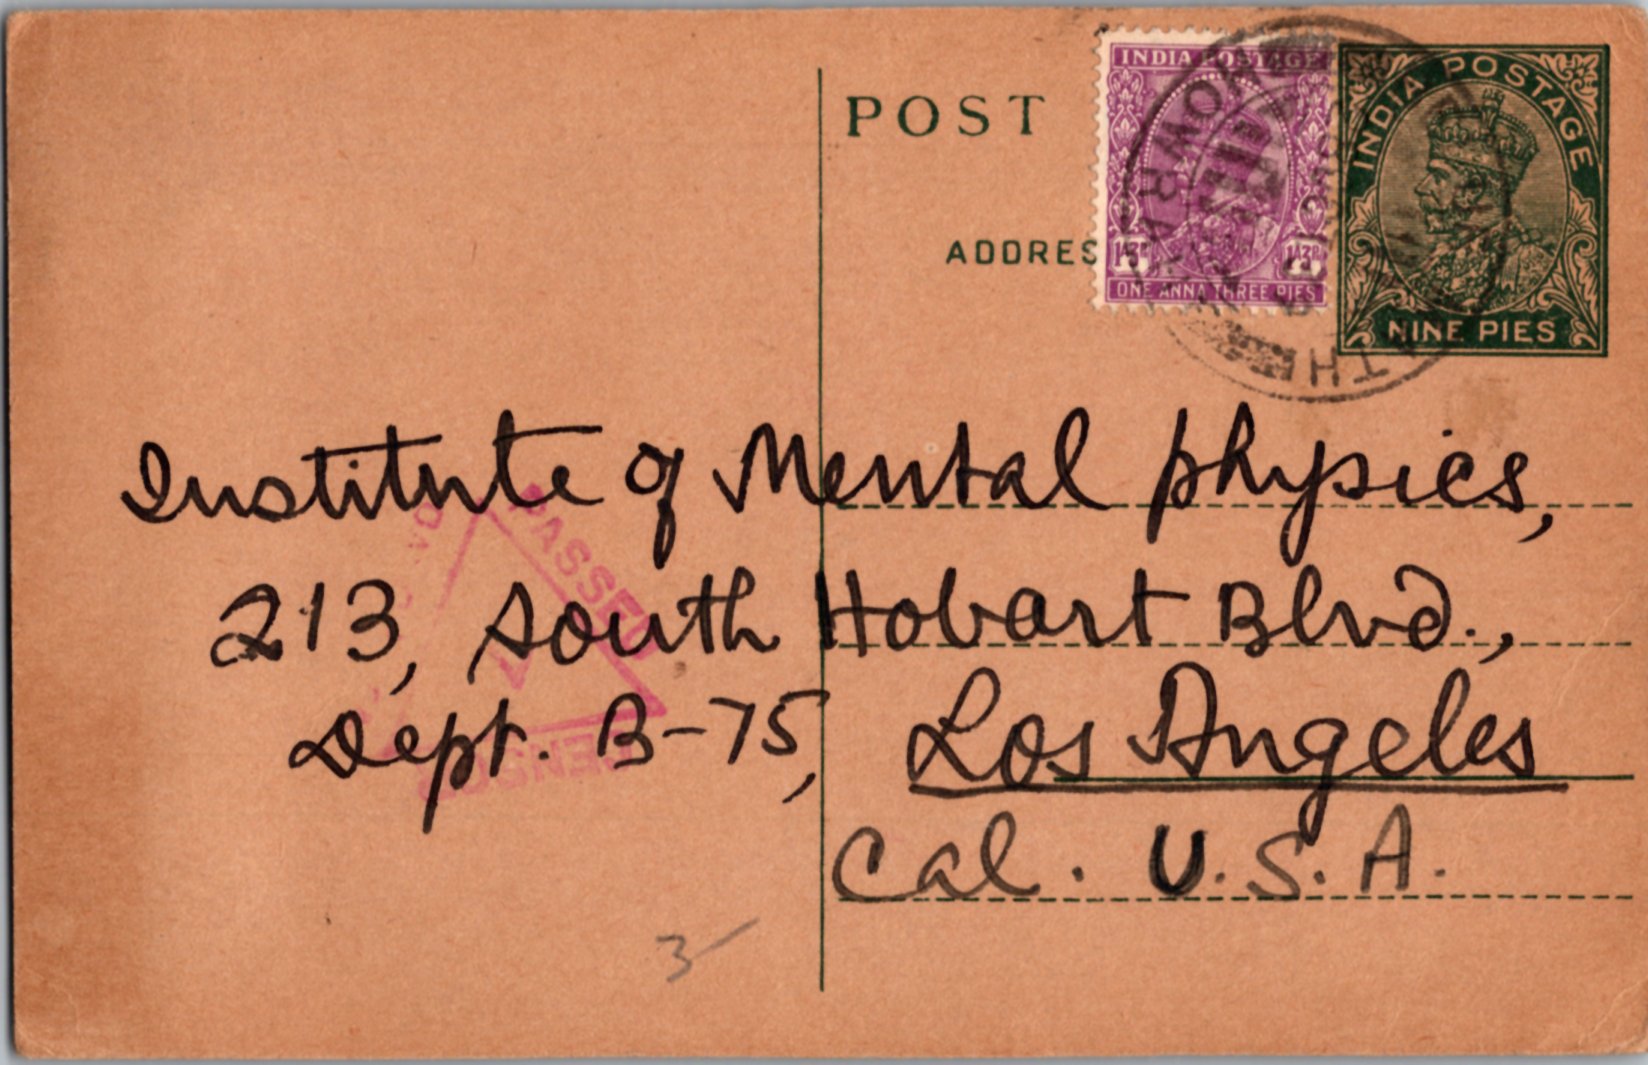 POST
ADDRES
INDIA POSTAGE
1A3P 1A3P
ONE ANNA THREE PIES
INDIA POSTAGE
NINE PIES
Institute of Mental physics,
213, South Hobart Blvd.,
Dept. B-75, Los Angeles
Cal. U.S.A.
PASSED
CENSOR
3